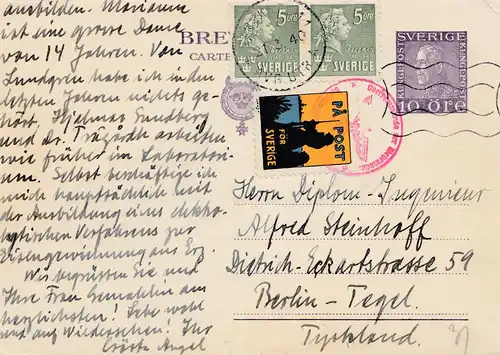 ausbilden. Marianne
ist eine grosse Dame
von 14 Jahren. Von
Lundgren habe ich in den
letzten Jahren nichts ge-
hört. Hjalmar Sundberg
und Dr. Trägårdh arbeiten
wie früher im Laboratori-
um. Selbst beschäftige ich
mich hauptsächlich mit
der Ausbildung eines elektro-
lytischen Verfahrens zur
Eisengewinnung aus Erz.
Wir begrüssen Sie und
Ihre Frau Gemahlin am
herzlichsten! Lebe wohl
und auf Wiedersehen! Ihr
Gösta Angel
BRE
CARTE
5 ÖRE
SVERIGE
5 ÖRE
SVERIGE
40
KUNGL. POST
SVERIGE
10 ÖRE
PÅ POST
FÖR
SVERIGE
Herrn Diplom-Ingenieur
Alfred Steinhoff
Dietrich-Eckartstrasse 59
Berlin-Tegel.
Tyskland.